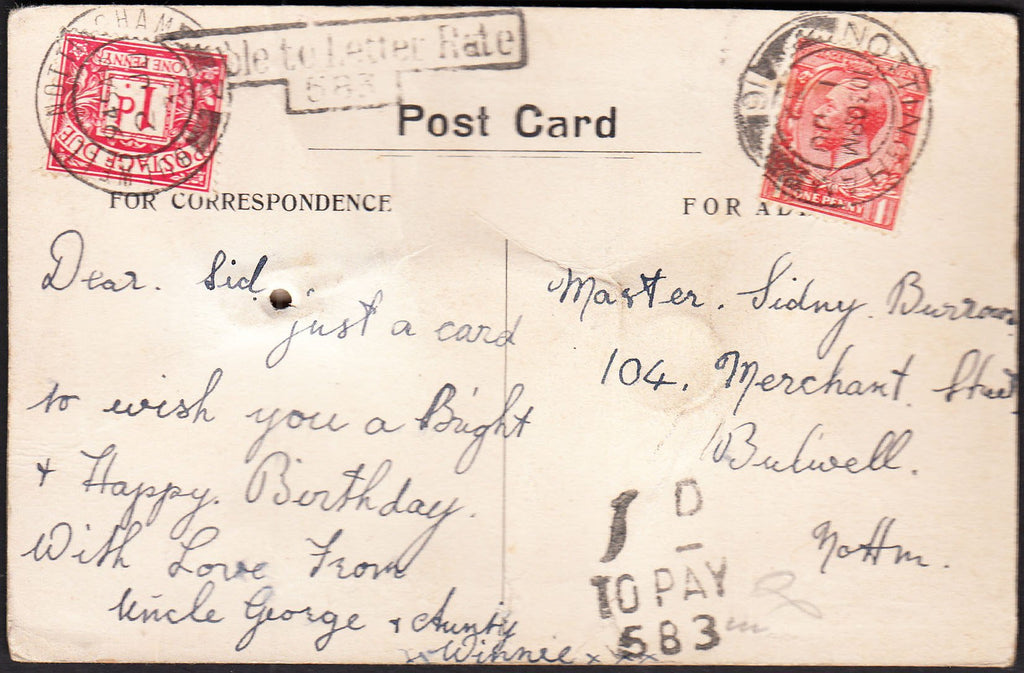 NOTTINGHAM
ONE PENNY
1d
POSTAGE DUE
to Letter Rate
583
Post Card
NOTTINGH
10 30 PM
16
ONE PENNY
FOR CORRESPONDENCE
Dear. Sid
just a card
to wish you a Bright
+ Happy. Birthday.
With Love From
Uncle George + Aunty
Winnie x x x
FOR AD
Master. Sidny. Burrows
104. Merchant. Street
Bulwell.
NoHm.
1 D
TO PAY
583